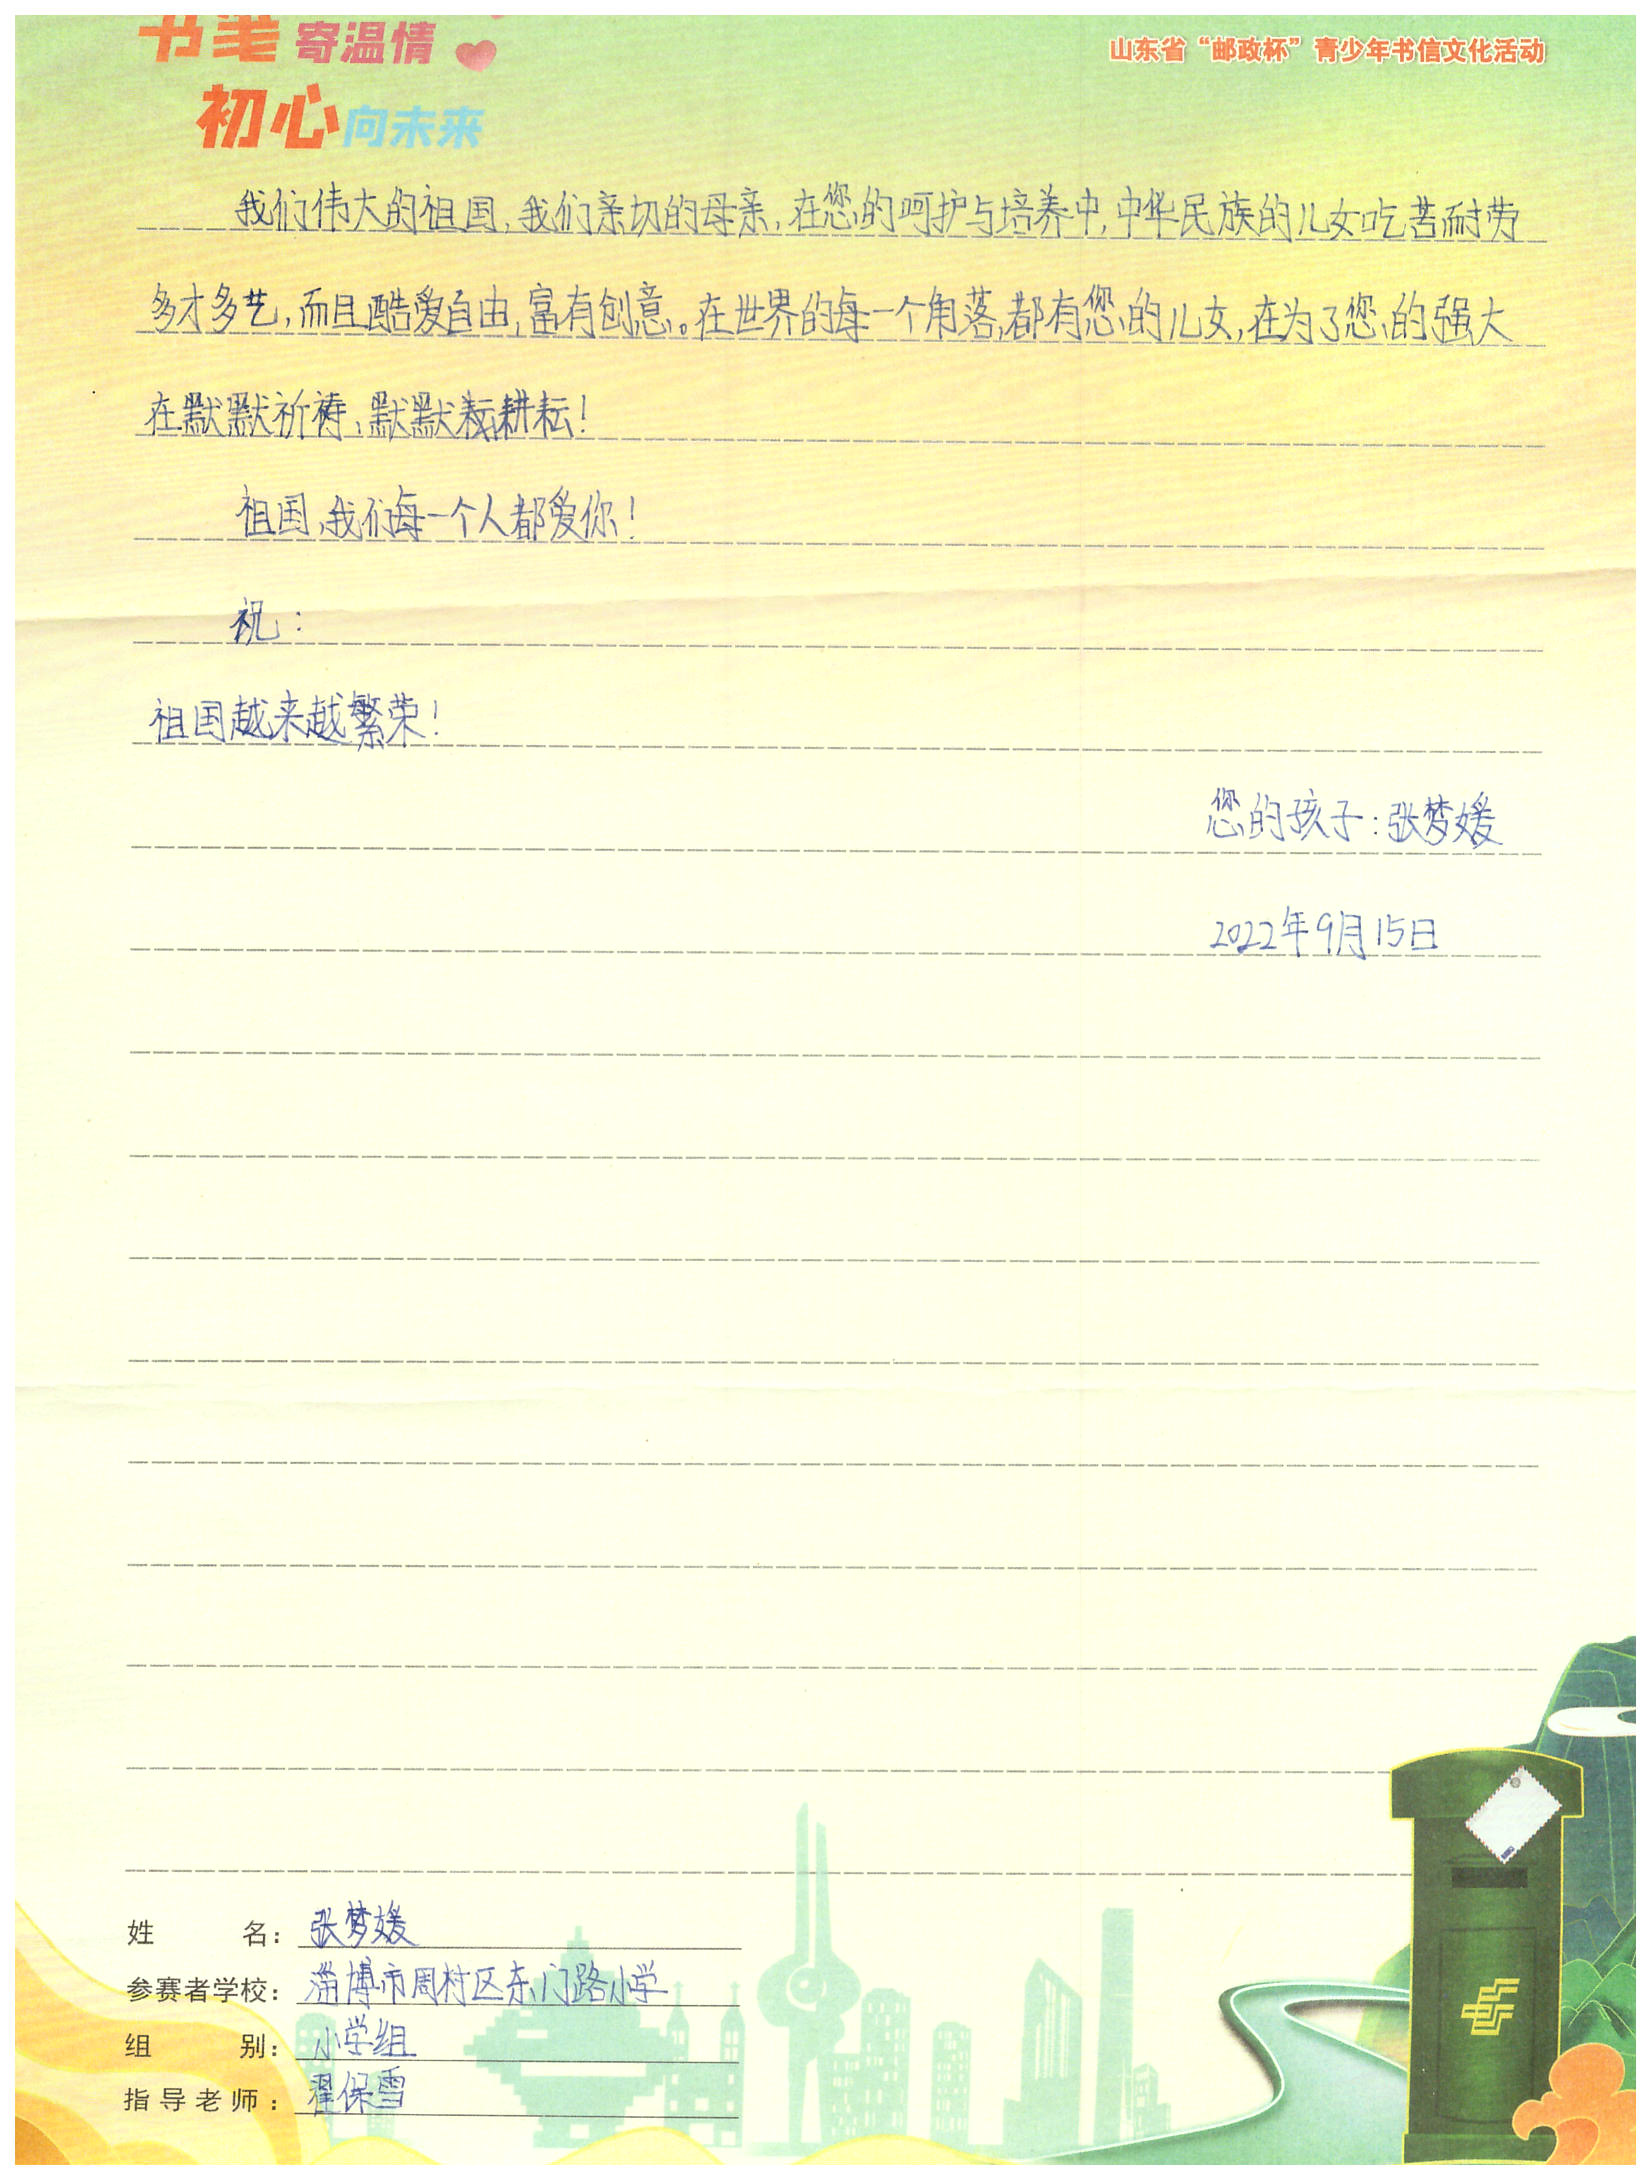 书笔寄温情
山东省“邮政杯”青少年书信文化活动
初心向未来
我们伟大的祖国,我们亲切的母亲,在您的呵护与培养中,中华民族的儿女吃苦耐劳
多才多艺,而且酷爱自由,富有创意。在世界的每一个角落,都有您的儿女,在为了您的强大
在默默祈祷,默默耕耘!
祖国,我们每一个人都爱你!
祝:
祖国越来越繁荣!
您的孩子:张梦媛
2022年9月15日
姓名:张梦媛
参赛者学校:淄博市周村区东门路小学
组别:小学组
指导老师:翟保雪